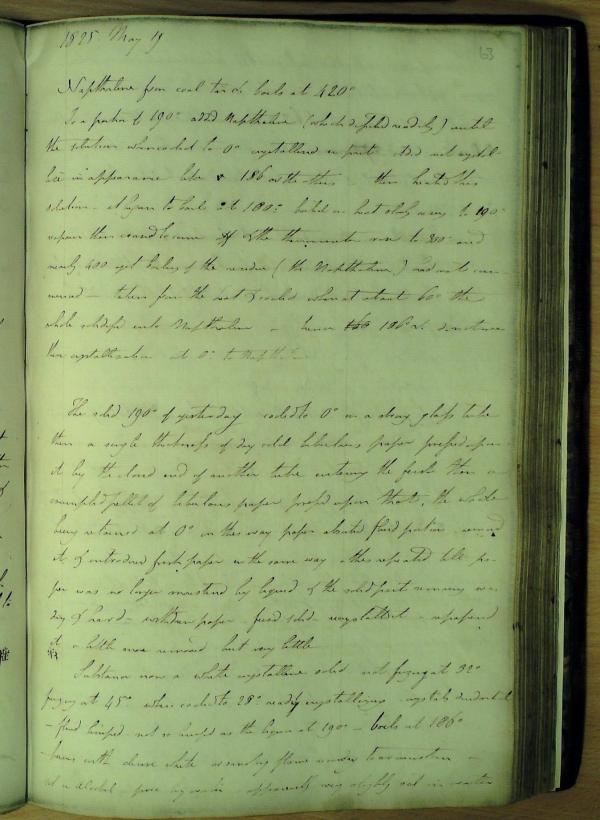 1825 May 19
63
Naphthaline from coal tar &c boils at 420°
To a portion of 190° added Naphthaline (which dissolved readily) until
the solution when cooled to 0° crystallized in part did not crystal-
lize in appearance like 186 or the others then heated this
solution - it began to boil at 180° boiled on heat slowly rising to 190°
vapour then the thermometer rose to 300 and
nearly 400 yet boiling of the residue (the Naphthaline) had not com-
menced - taken from the heat & cooled when at about 60° the
whole solidified into Naphthaline - hence 186 is
crystallization at 0° to Naphthaline

The solid 190° of yesterday cooled to 0° in a strong glass tube
then a single thickness of dry cold bibulous paper pressed upon
it by the closed end of another tube entering the first then a
crumpled pellet of bibulous paper pressed upon that, the whole
being retained at 0° in this way paper absorbed fluid portion removed
it & introduced fresh paper in the same way - this repeated till pa-
per was no longer moistened by liquid & the solid part remaining was
dry & hard - withdrew paper - fused solid - crystallized - repressed
it a little more removed but very little
Substance now a white crystalline solid not fusing at 32°
fusing at 45° when cooled to 28° readily crystallizes crystals dendritical
- fluid limpid not so limpid as the liquor at 190° - boils at 186°
- burns with dense white smoking flame
sol in alcohol - apparently very slightly sol in water